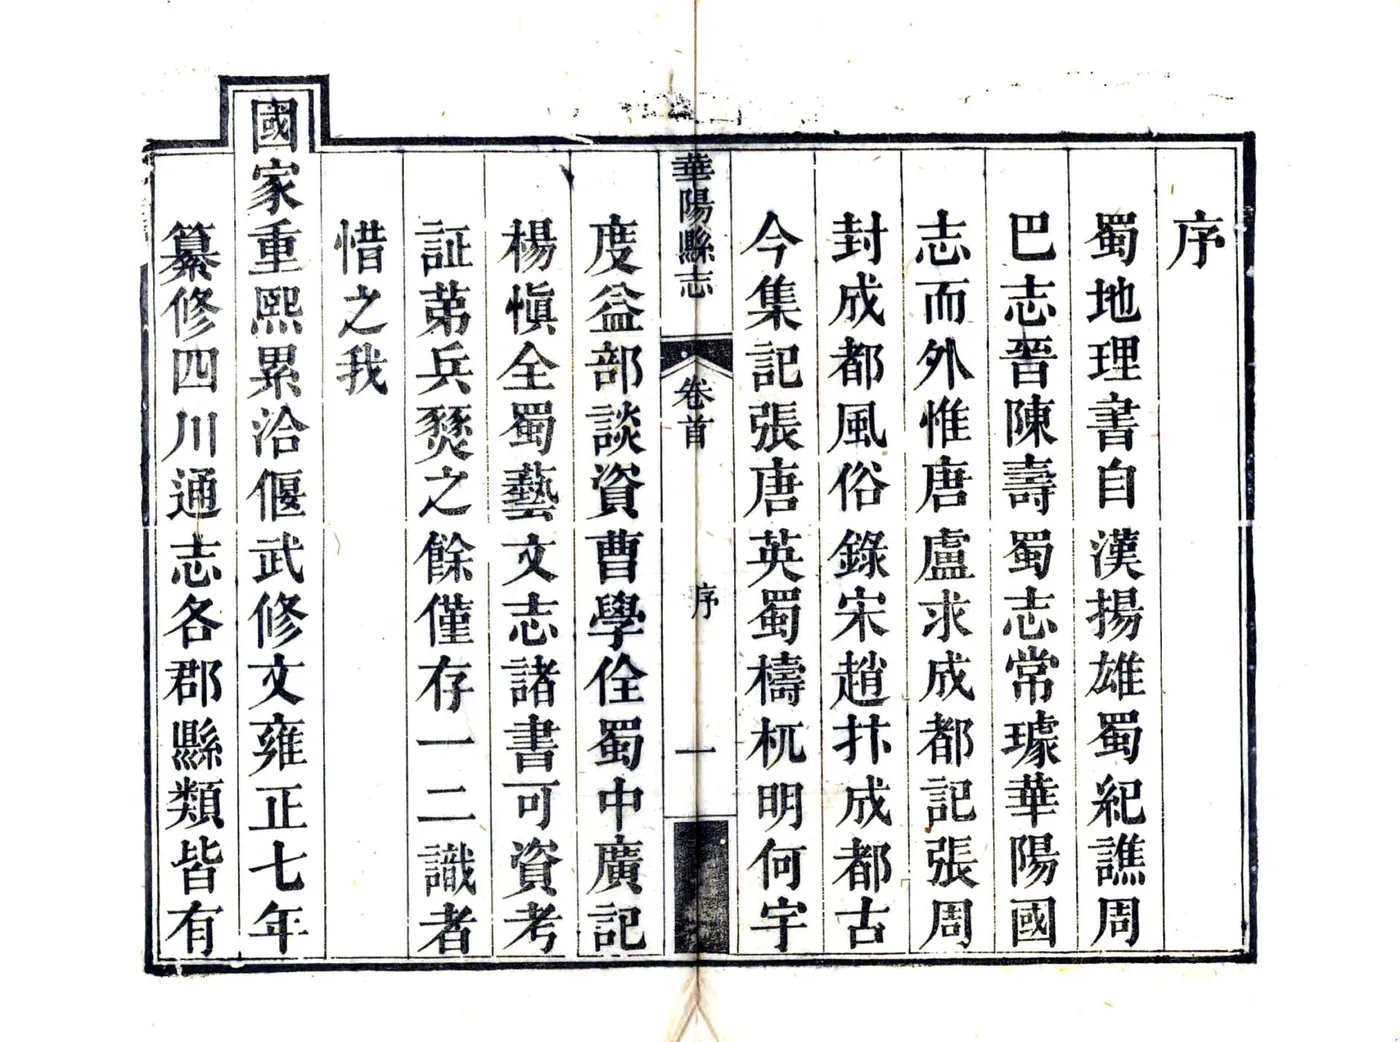 序
蜀地理書自漢揚雄蜀紀譙周
巴志晉陳壽蜀志常璩華陽國
志而外惟唐盧求成都記張周
封成都風俗錄宋趙抃成都古
今集記張唐英蜀檮杌明何宇
華陽縣志
卷首
序
一
度益部談資曹學佺蜀中廣記
楊愼全蜀藝文志諸書可資考
証苐兵燹之餘僅存一二識者
惜之我
國家重熙累洽偃武修文雍正七年
纂修四川通志各郡縣類皆有